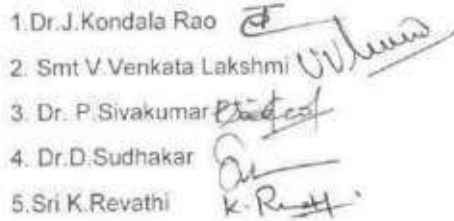 1.Dr.J.Kondala Rao
2. Smt V.Venkata Lakshmi
3. Dr. P.Sivakumar
4. Dr.D.Sudhakar
5.Sri K.Revathi K. Revathi